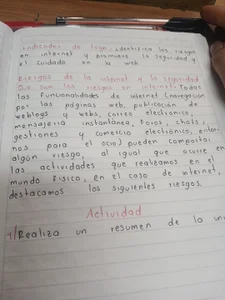 Indicador de logro: identifica los riesgos
en internet y promueve la seguridad y
el cuidado en la web
Riesgos de la internet y la seguridad
Que son los riesgos en internet: Todas
las funcionalidades de internet (navegación
por las páginas web, publicación de
weblogs y webs, correo electronico,
mensajeria instantánea, foros, chats,
gestiones y comercio electrónico, entor-
nos para el ocio) pueden comportar
algún riesgo, al igual que ocurre en
las actividades que realizamos en el
mundo fisico, en el caso de internet,
destacamos los siguientes riesgos.
Actividad
1/ Realiza un resumen de la